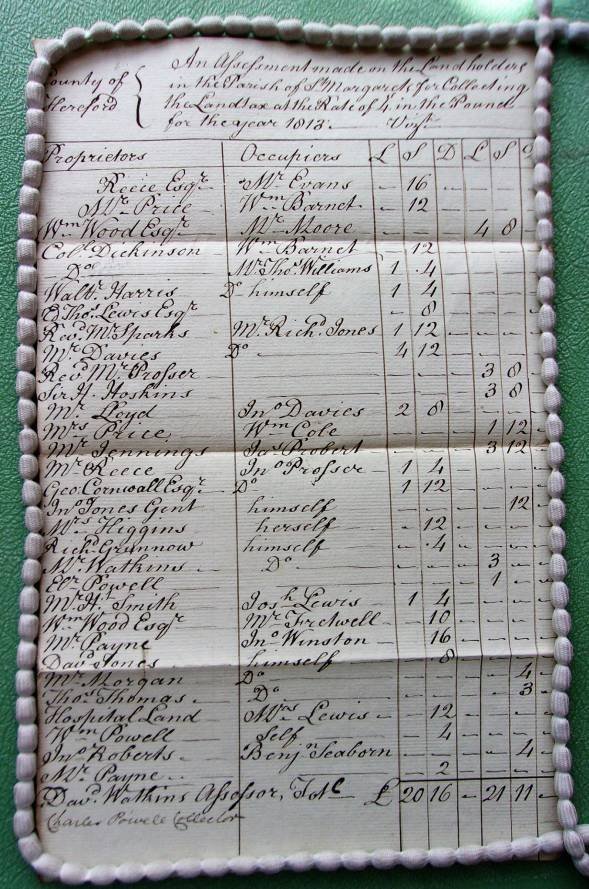 County of Hereford { An Assessment made on the Landholders
in the Parish of St. Margarets for Collecting
the Landtax at the Rate of 4/ in the Pound
for the year 1813. Vizt.
Proprietors Occupiers £ S D £ S D
Reece Esqr. Mr. Evans - 16 - - - -
Mr. Price Wm. Barnet - 12 - - - -
Wm Wood Esqr. Mr. Moore - - - 4 8 -
Col. Dickinson Wm Barnet 12
Do. Mr. Thos. Williams 1 4
Waltr. Harris Do himself 1 4
Thos. Lewis Esqr. - 8
Revd. Mr. Sparks Mr. Richd. Jones 1 12 - - - -
Mr. Davies Do. 4 12 - - - -
Revd Mr. Prosser 3 8 -
Sir H. Hoskins 3 8
Mr. Lloyd Jno. Davies 2 8 - - - -
Mrs. Price Wm Cole - - - 1 12 -
Mr. Jennings Jas. Probert - - - 3 12 -
Mr. Reece Jno. Prosser 1 4 - - - -
Geo. Cornwall Esqr. Do 1 12 - - - -
Jno. Jones Gent himself 12 -
Mrs. Higgins herself - 12 - - - -
Richd. Grunnow himself - 4 - - - -
Mr. Watkins Do. - - - 3 - -
Powell - - - 1 - -
Mr. H. Smith Josh. Lewis 1 4 - - - -
Wm Wood Esqr Mr. Fretwell - 10 - - - -
Mr. Payne Jno. Winston 16 - - - -
Davd. Jones himself - 8 - - - -
Mr. Morgan Do. - - - - 4 -
Thos. Thomas Do. - - - - 3 -
Hospital Land Mrs. Lewis - 12 - - - -
Wm. Powell Self - 4 - - - -
Jno. Roberts Benjn. Seaborn - - - - 4 -
Mr. Payne - 2 - - - -
Davd. Watkins Assessor, Totl £ 20 16 - 21 11 -
Charles Powell Collector